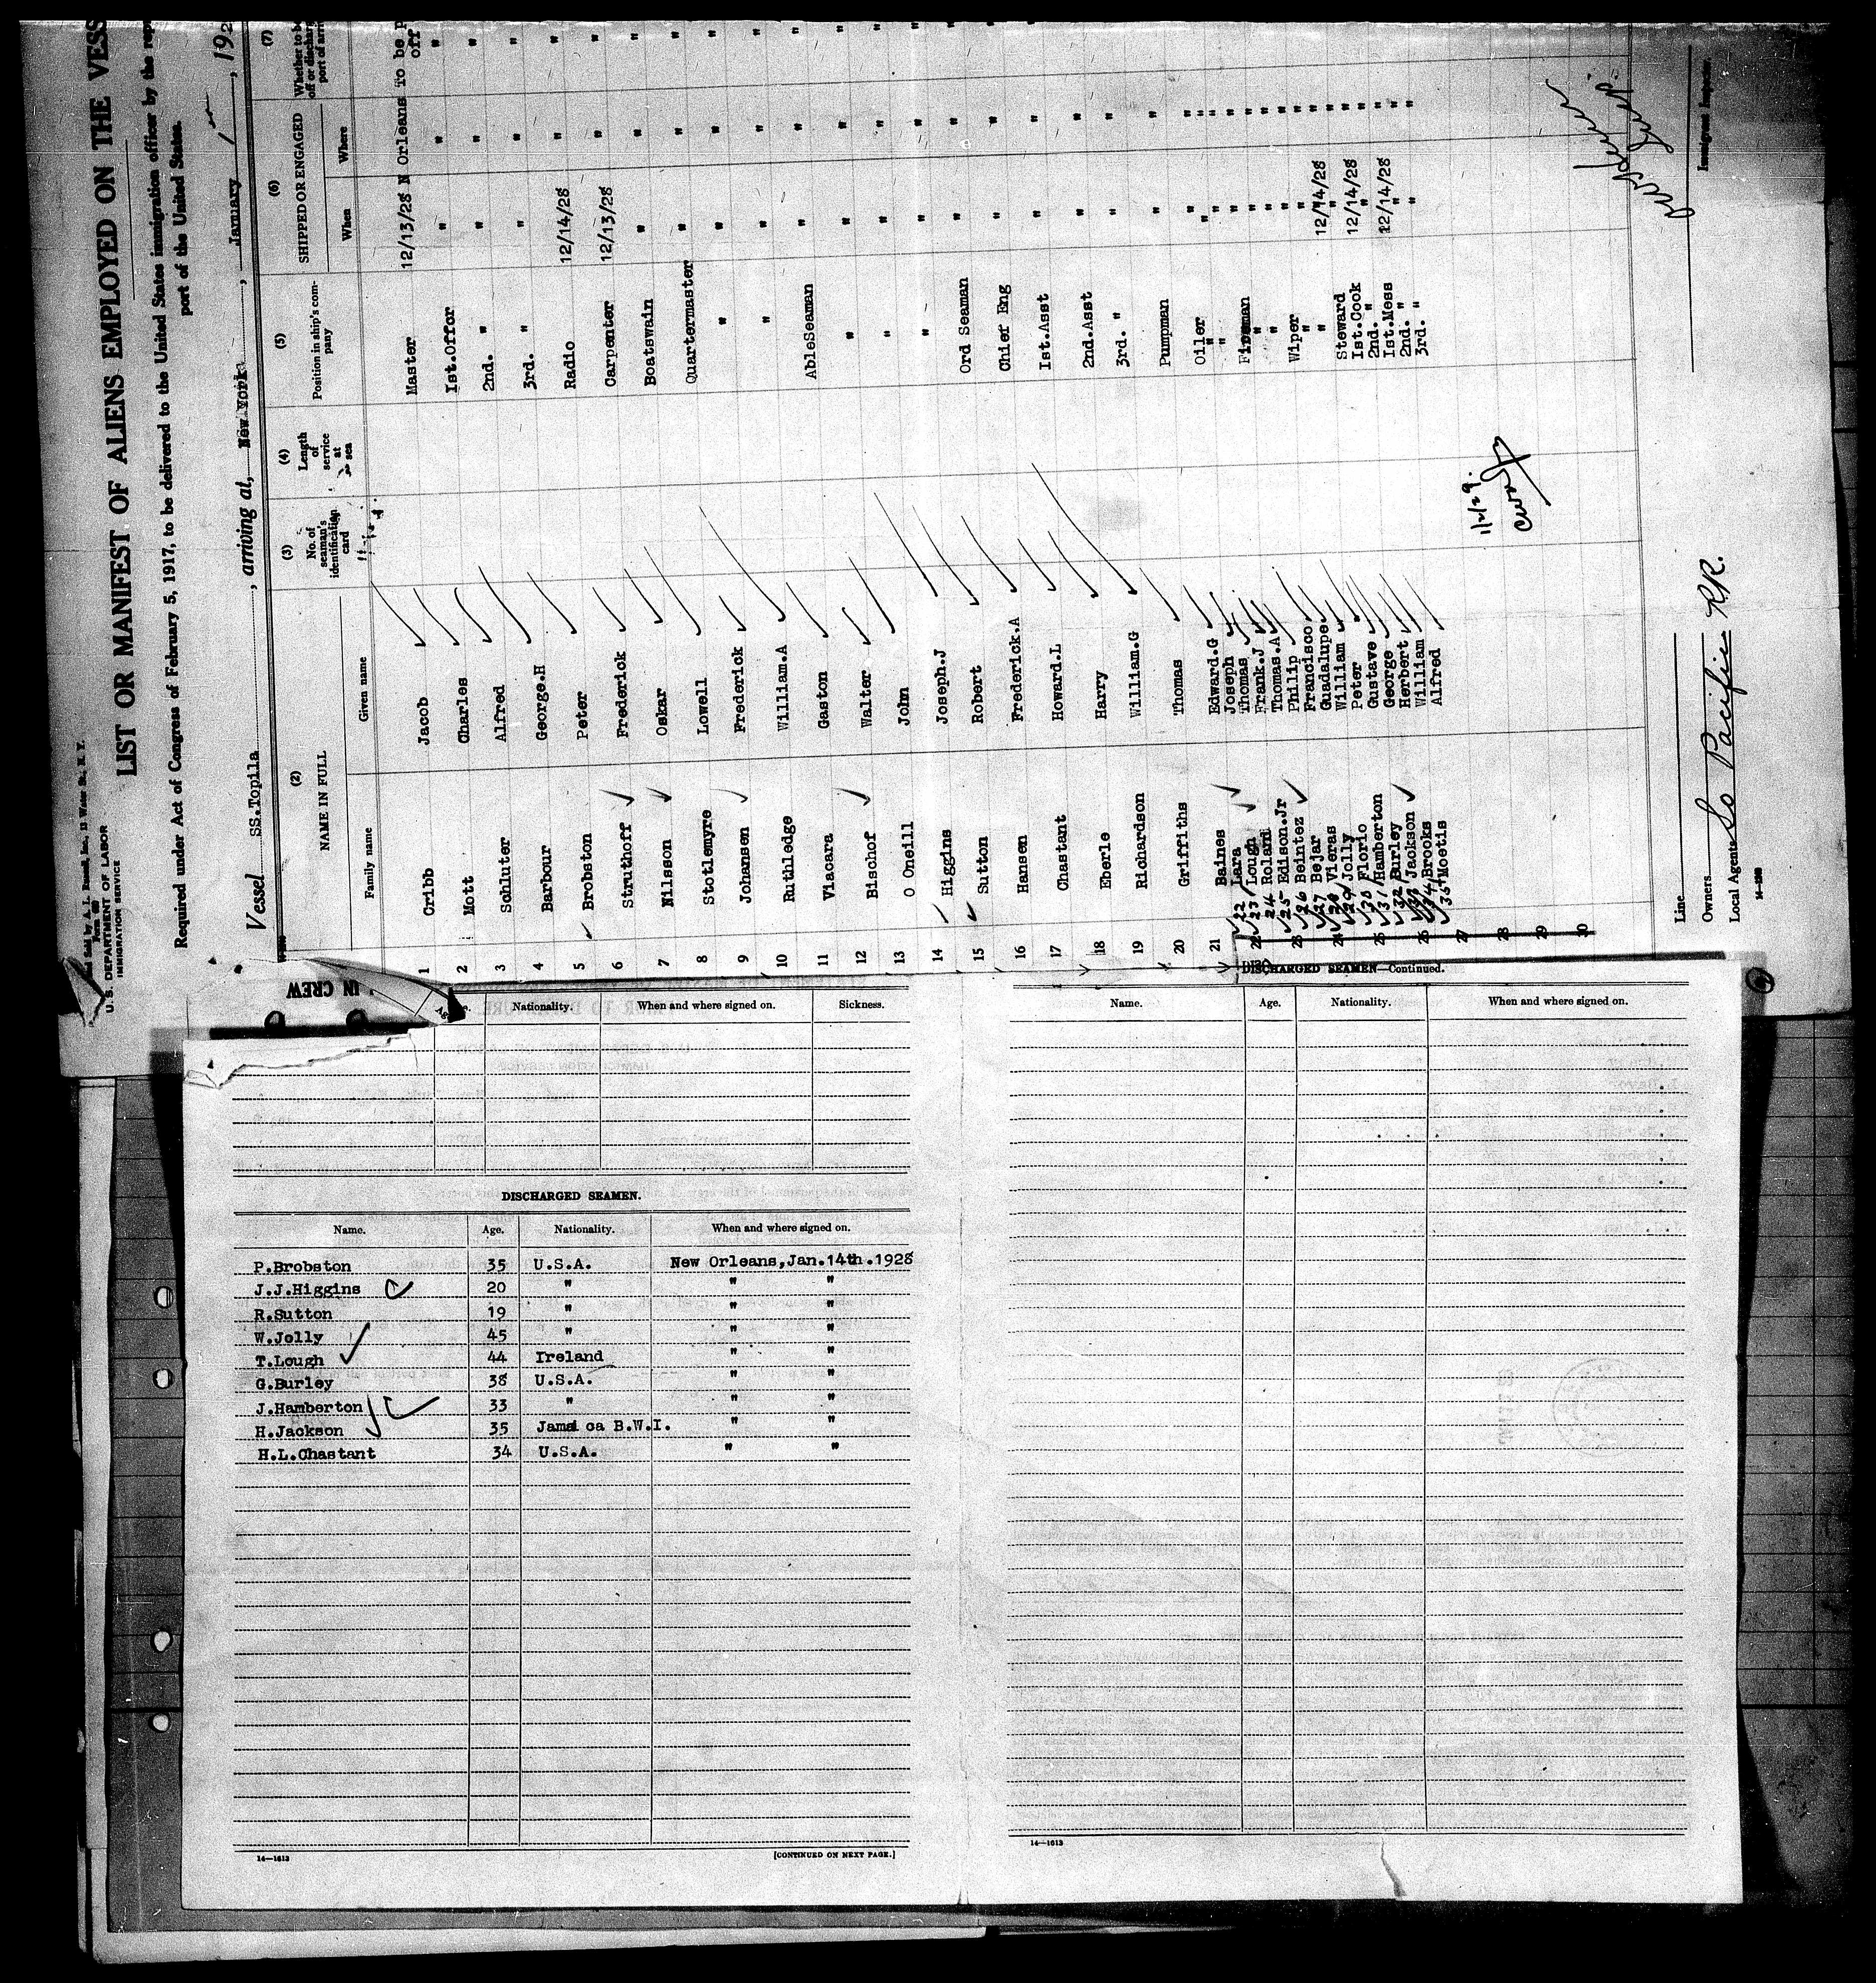 and Sold by A. I. Rosand, Inc., 11 Water St., N. Y.
U. S. DEPARTMENT OF LABOR
IMMIGRATION SERVICE
LIST OR MANIFEST OF ALIENS EMPLOYED ON THE VESS
Required under Act of Congress of February 5, 1917, to be delivered to the United States immigration officer by the rep
port of the United States.
Vessel SS.Topila, arriving at, New York, January 1, 192
(2) (3) (4) (5) (6) (7)
NAME IN FULL
No. of seaman's identification card
Length of service at sea
Position in ship's company
SHIPPED OR ENGAGED
Whether to b
off or dischar
port of arri
Family name Given name When Where
1 Cribb Jacob Master 12/13/28 N Orleans To be p
off
2 Mott Charles Ist.Offor " " "
3 Schluter Alfred 2nd. " " " "
4 Barbour George.H 3rd. " " " "
5 Brobston Peter Radio 12/14/28 " "
6 Struthoff Frederick Carpenter 12/13/28 " "
7 Nilsson Oskar Boatswain " " "
8 Stotlemyre Lowell Quartermaster " " "
9 Johansen Frederick " " " "
10 Ruthledge William.A " " " "
11 Viacara Gaston AbleSeaman " " "
12 Bischof Walter " " " "
13 O Oneill John " " " "
14 Higgins Joseph.J " " " "
15 Sutton Robert Ord Seaman " " "
16 Hansen Frederick.A Chief Eng " " "
17 Chastant Howard.L Ist.Asst " " "
18 Eberle Harry 2nd.Asst " "
19 Richardson William.G 3rd. " " "
20 Griffiths Thomas Pumpman " "
21 Baines Edward.G Oiler " "
22 Lara Joseph " " "
23 Lough Thomas " " "
24 Roland Frank.J Fireman " "
25 Edison.Jr Thomas.A " " "
26 Beintez Philip " " "
27 Bejar Francisco Wiper " "
28 Vieras Guadalupe " " "
29 Jolly William " " "
30 Florio Peter Steward 12/14/28 "
31 Hamberton Gustave Ist.Cook " "
32 Burley George 2nd. " 12/14/28 "
33 Jackson Herbert Ist.Mess " "
34 Brooks William 2nd. " 12/14/28 "
35 Moetis Alfred 3rd. " " "
22
23
24
25
26
27
28
29
30
1/2/29.
Line
Owners
Local Agents So Pacific RR.
Immigrant Inspector.
14-208
IN CREW
Age. Nationality. When and where signed on. Sickness.
DISCHARGED SEAMEN.
Name. Age. Nationality. When and where signed on.
P.Brobston 35 U.S.A. New Orleans,Jan.14th.1928
J.J.Higgins 20 " " "
R.Sutton 19 " " "
W.Jolly 45 " " "
T.Lough 44 Ireland " "
G.Burley 38 U.S.A. " "
J.Hamberton 33 " " "
H.Jackson 35 Jamaica B.W.I. " "
H.L.Chastant 34 U.S.A. " "
14—1613
[CONTINUED ON NEXT PAGE.]
DISCHARGED SEAMEN—Continued.
Name. Age. Nationality. When and where signed on.
14—1613